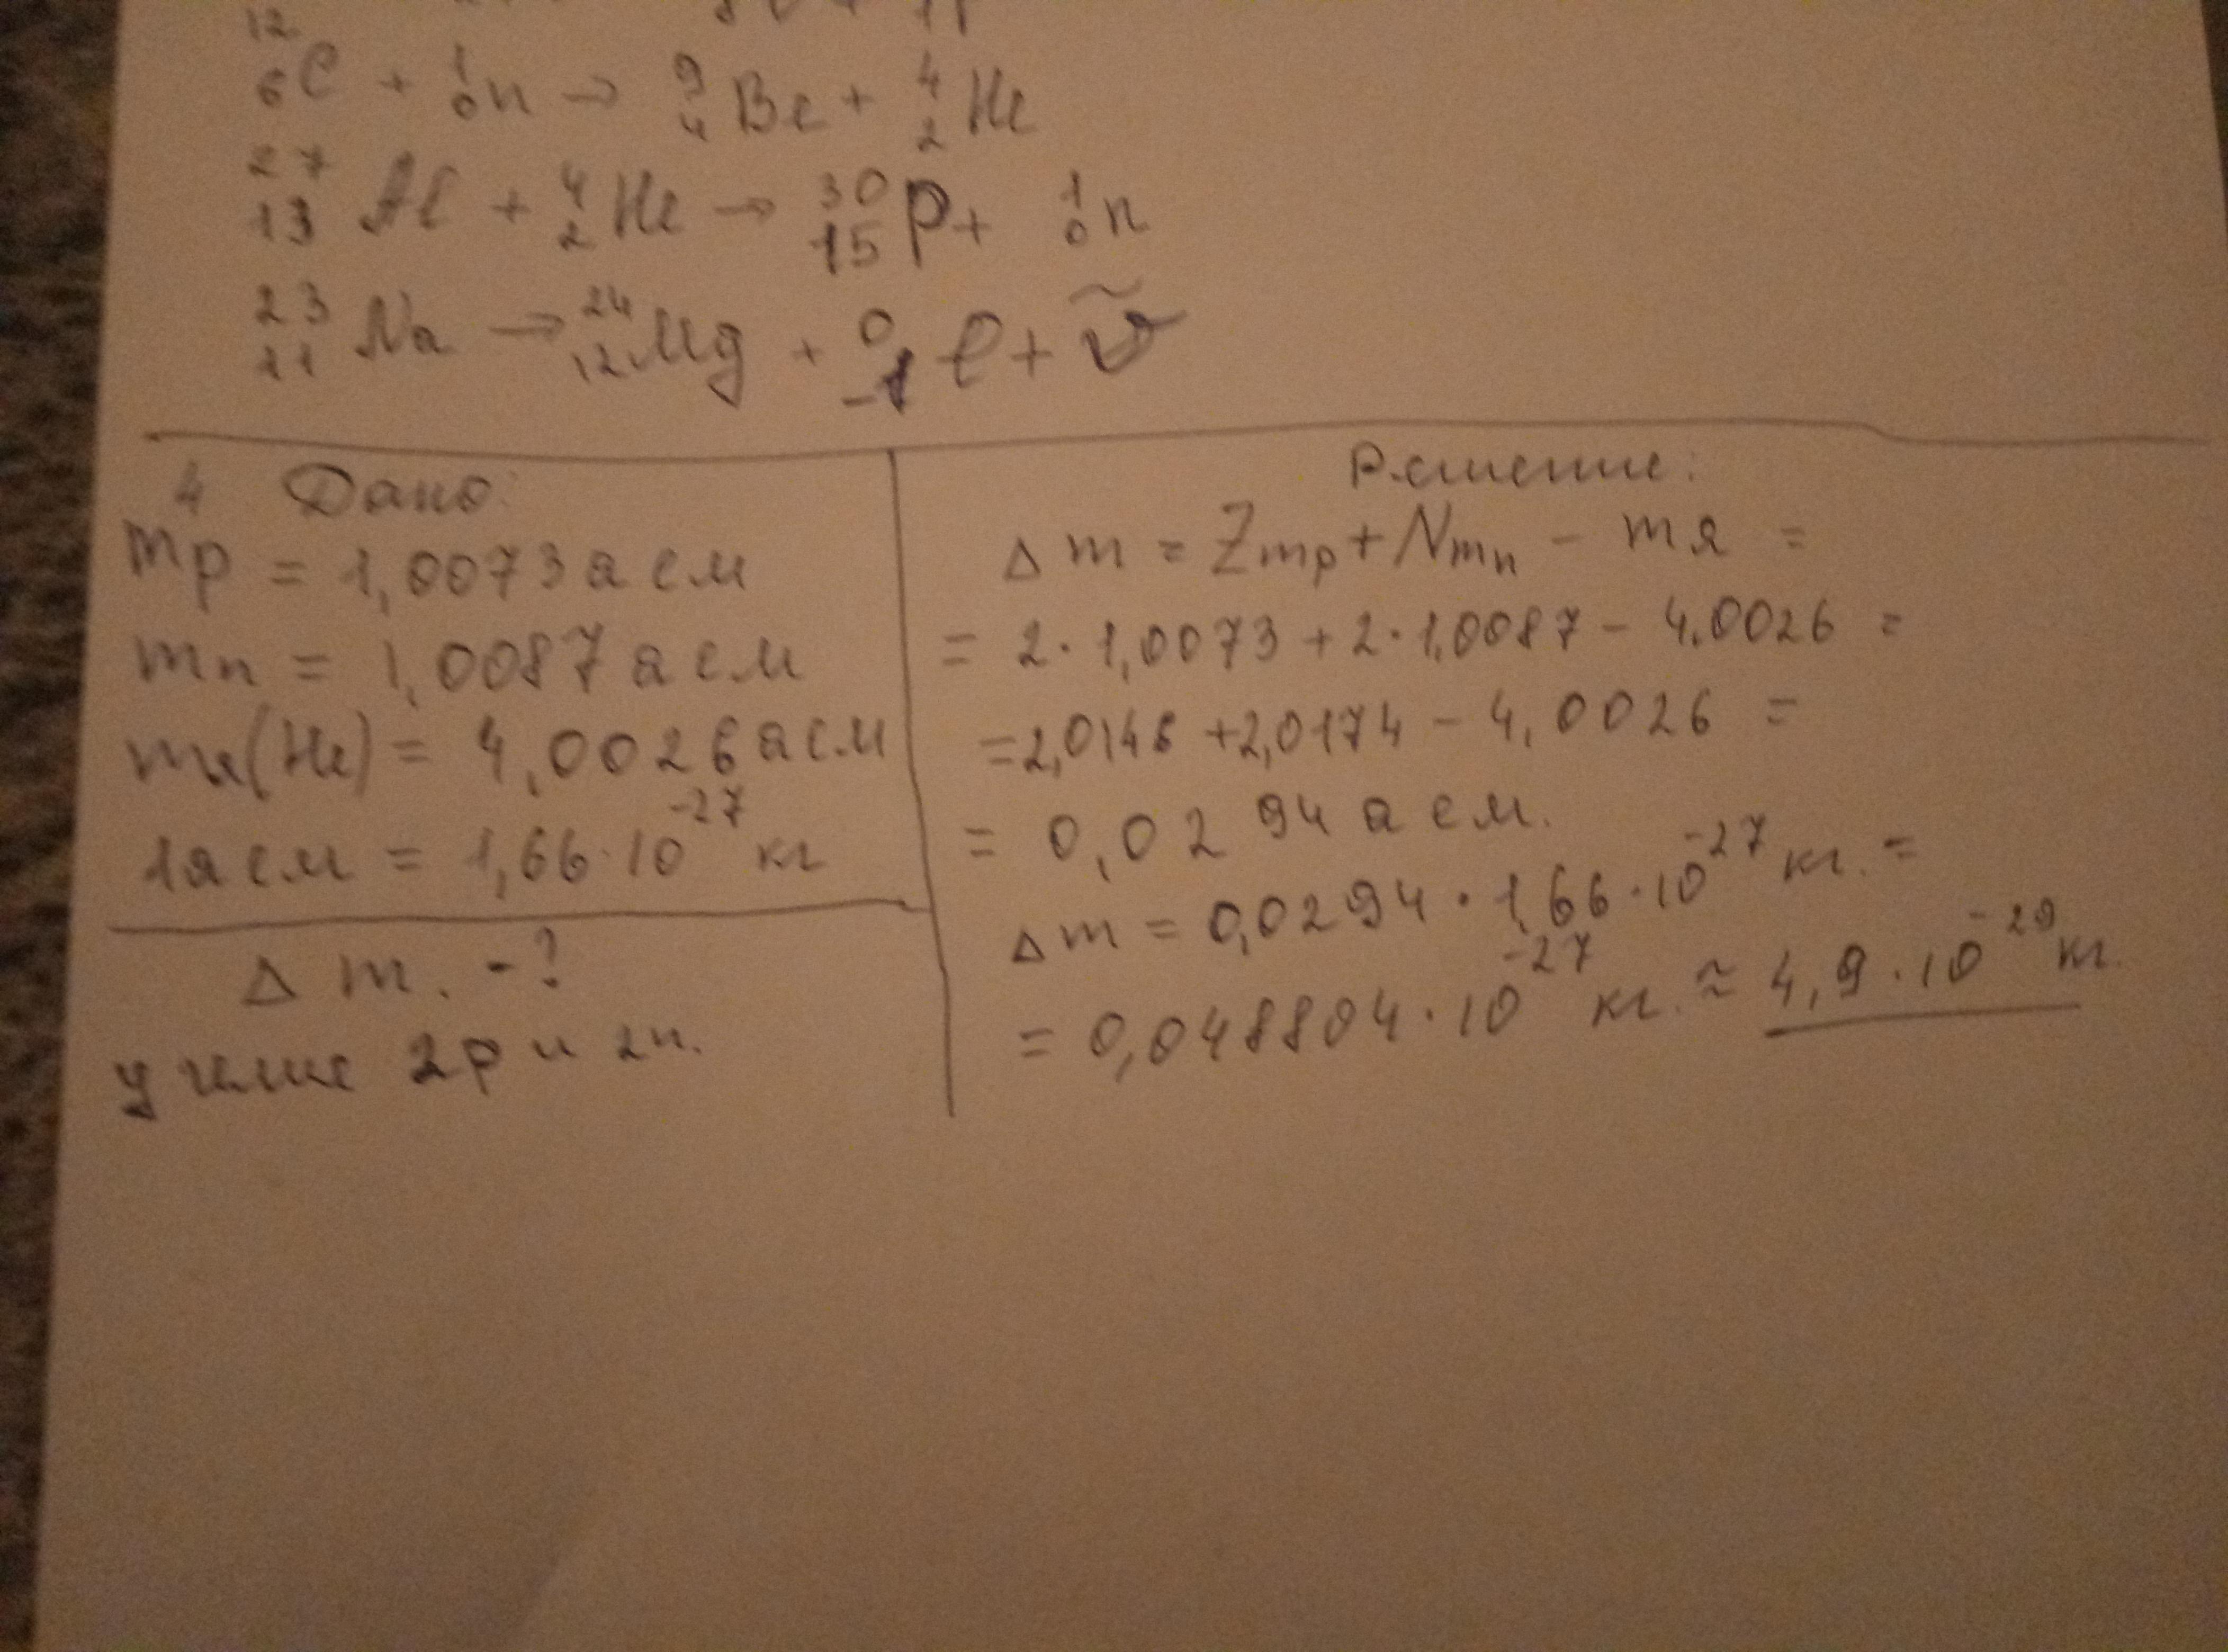 ¹²₆C + ¹₀n → ⁹₄Be + ⁴₂He
²⁷₁₃Al + ⁴₂He → ³⁰₁₅P + ¹₀n
²³₁₁Na → ²⁴₁₂Mg + ⁰₋₁e + ν̃
4 Дано:
mp = 1,0073 а е м
mn = 1,0087 а е м
mя(He) = 4,0026 а е м
1а е м = 1,66·10⁻²⁷ кг
Δ m. -?
у гелие 2p и 2n.
Решение:
Δ m = Zmp + Nmn - mя =
= 2·1,0073 + 2·1,0087 - 4,0026 =
= 2,0146 + 2,0174 - 4,0026 =
= 0,0294 а е м.
Δ m = 0,0294 · 1,66·10⁻²⁷ кг. =
= 0,048804·10⁻²⁷ кг. ≈ 4,9·10⁻²⁹ кг.